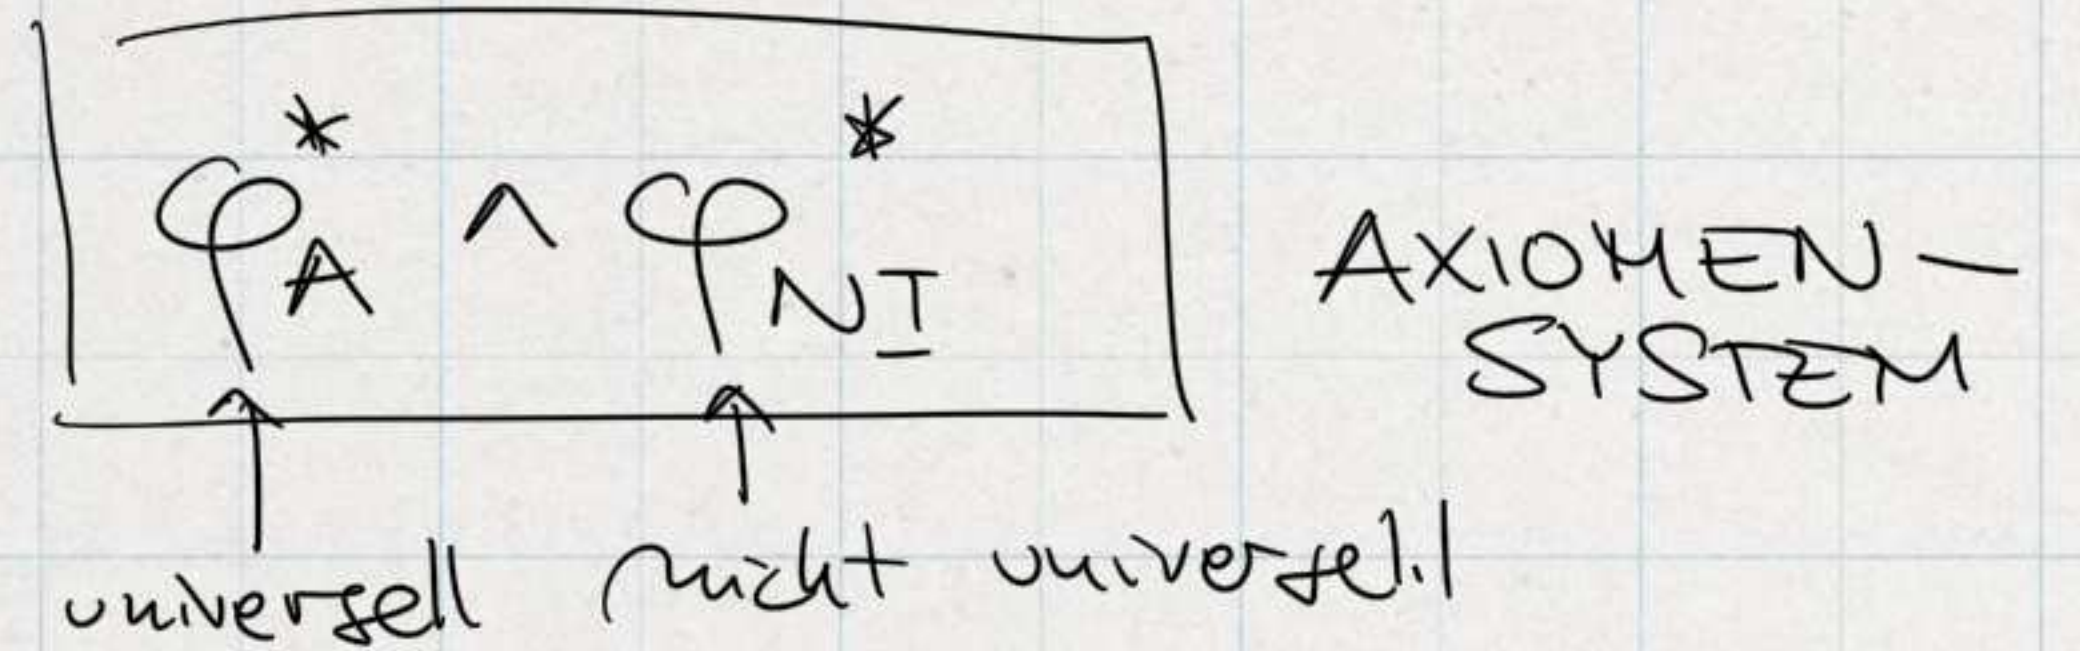 φ*_A ∧ φ*_NI
AXIOMEN-
SYSTEM
universell nicht universell